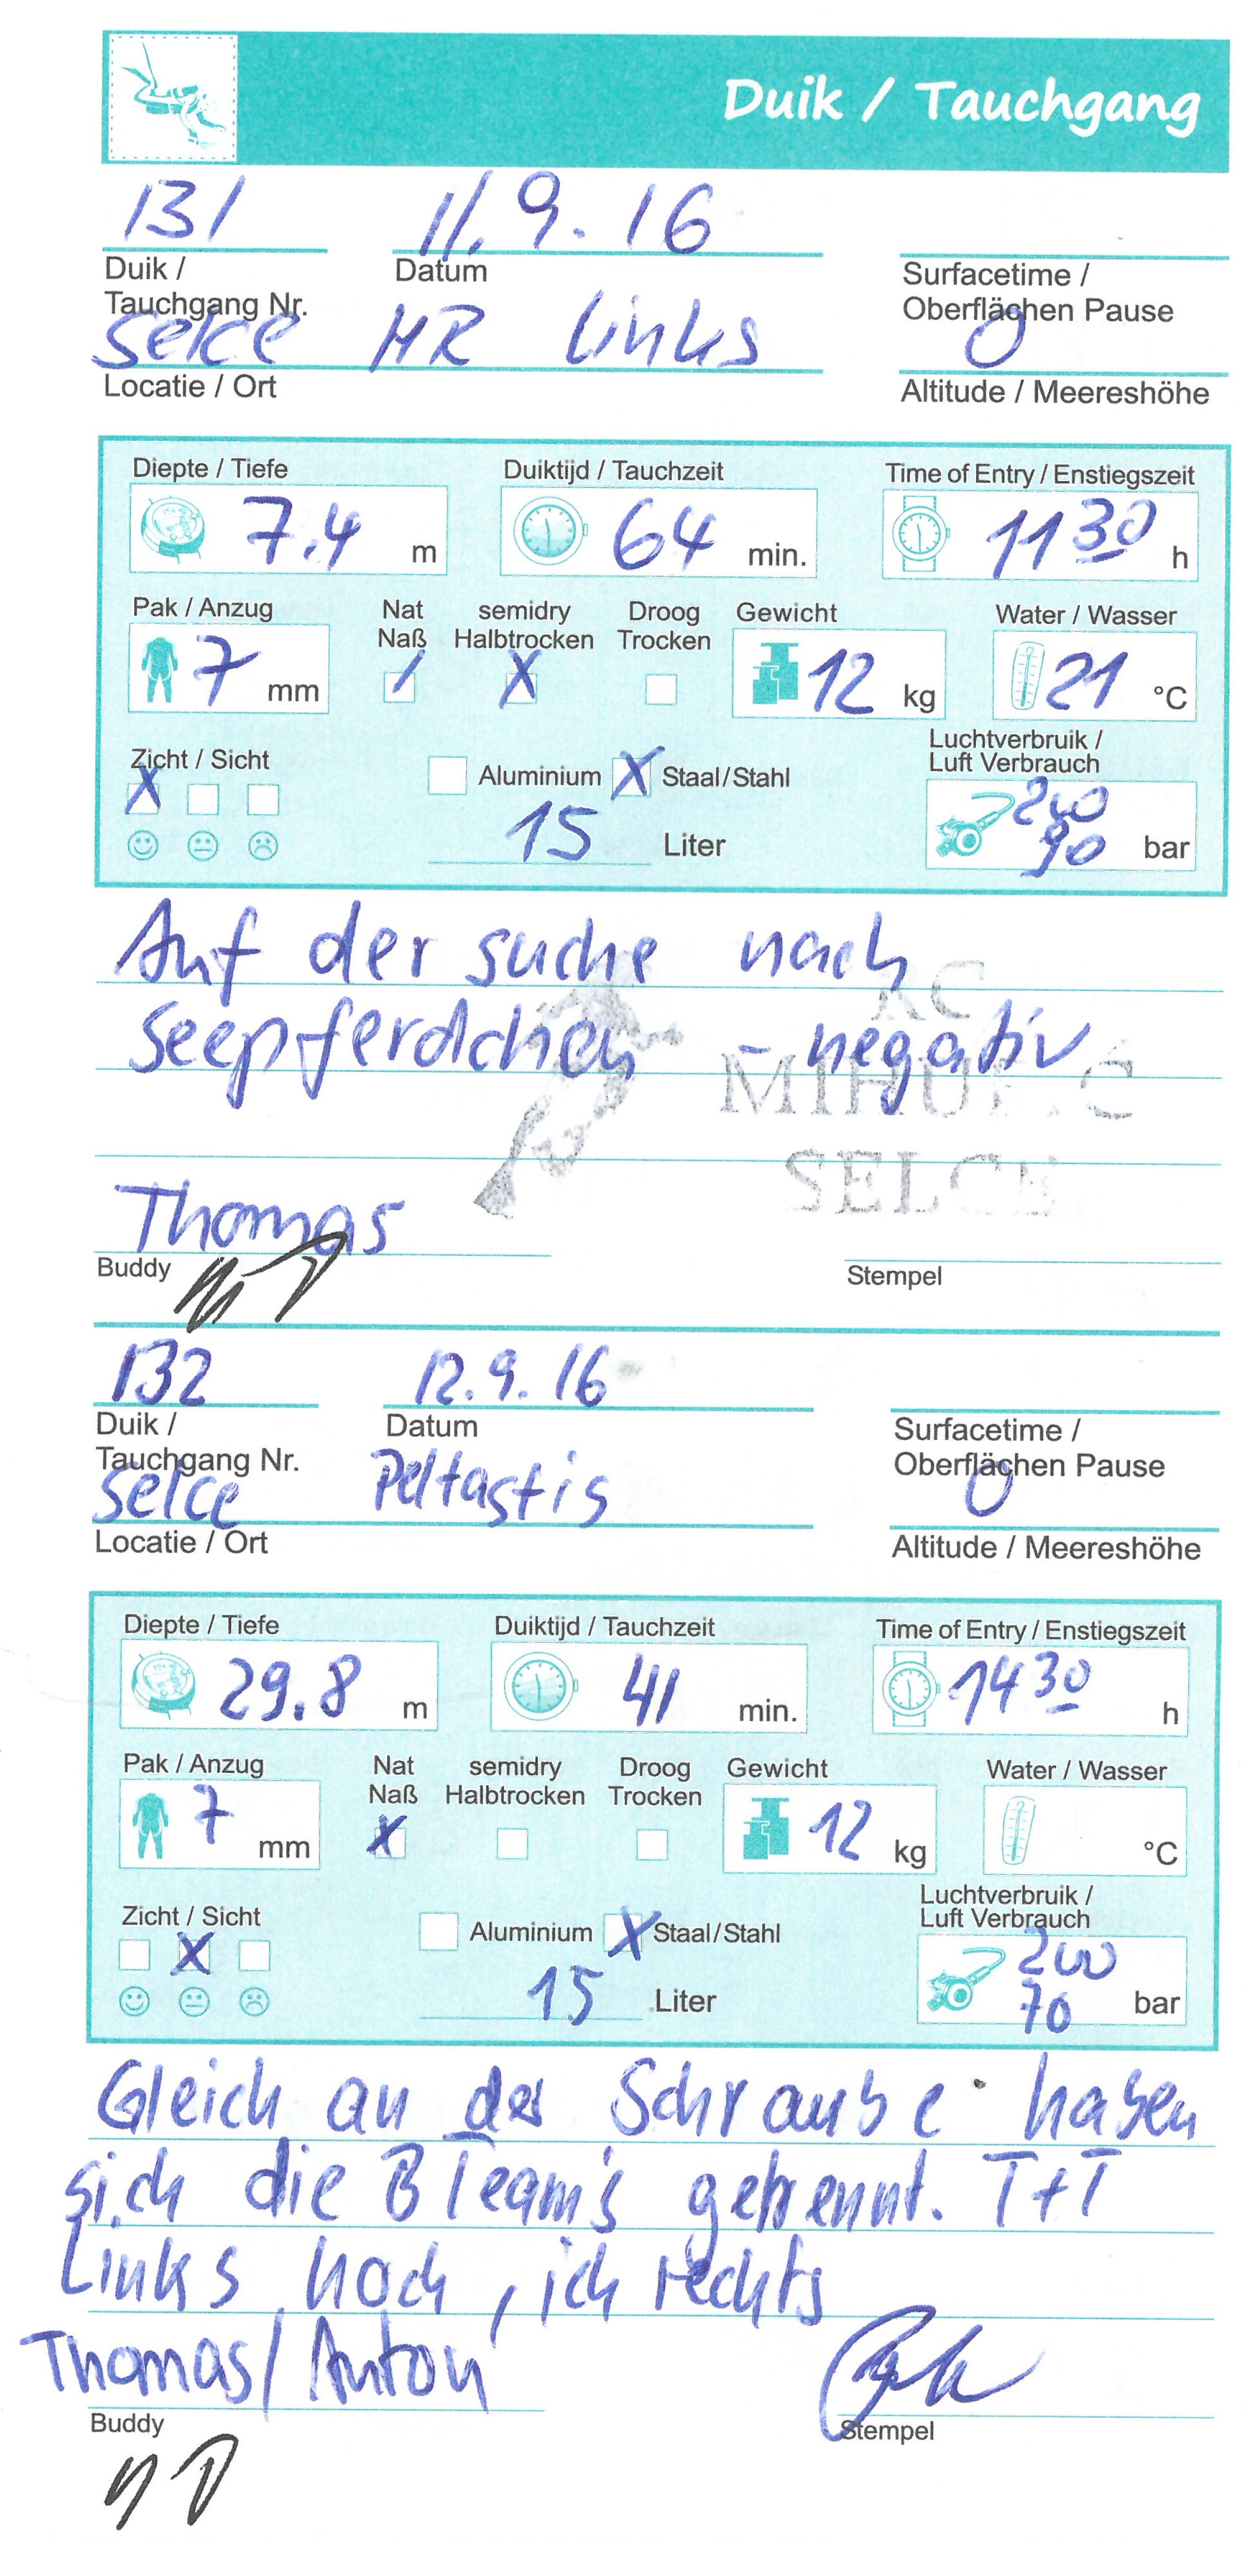 Duik / Tauchgang
131 11.9.16
Duik / Datum Surfacetime /
Tauchgang Nr. Oberflächen Pause
Selce HR links 0
Locatie / Ort Altitude / Meereshöhe
Diepte / Tiefe Duiktijd / Tauchzeit Time of Entry / Enstiegszeit
7.4 m 64 min. 11 30 h
Pak / Anzug Nat semidry Droog Gewicht Water / Wasser
Naß Halbtrocken Trocken
7 mm / X 12 kg 21 °C
Zicht / Sicht Luchtverbruik /
Luft Verbrauch
X Aluminium X Staal/Stahl 200
15 Liter 90 bar
Auf der suche nach
Seepferdchen - negativ
KC
SELCE
Thomas
Buddy Stempel
132 12.9.16
Duik / Datum Surfacetime /
Tauchgang Nr. Oberflächen Pause
Selce Peltastis 0
Locatie / Ort Altitude / Meereshöhe
Diepte / Tiefe Duiktijd / Tauchzeit Time of Entry / Enstiegszeit
29.8 m 41 min. 14 30 h
Pak / Anzug Nat semidry Droog Gewicht Water / Wasser
Naß Halbtrocken Trocken
7 mm X 12 kg °C
Zicht / Sicht Luchtverbruik /
Luft Verbrauch
X Aluminium X Staal/Stahl 200
15 Liter 70 bar
Gleich an der Schraube haben
sich die B Team's getrennt. T+T
Links hoch, ich rechts
Thomas/Anton
Buddy Stempel